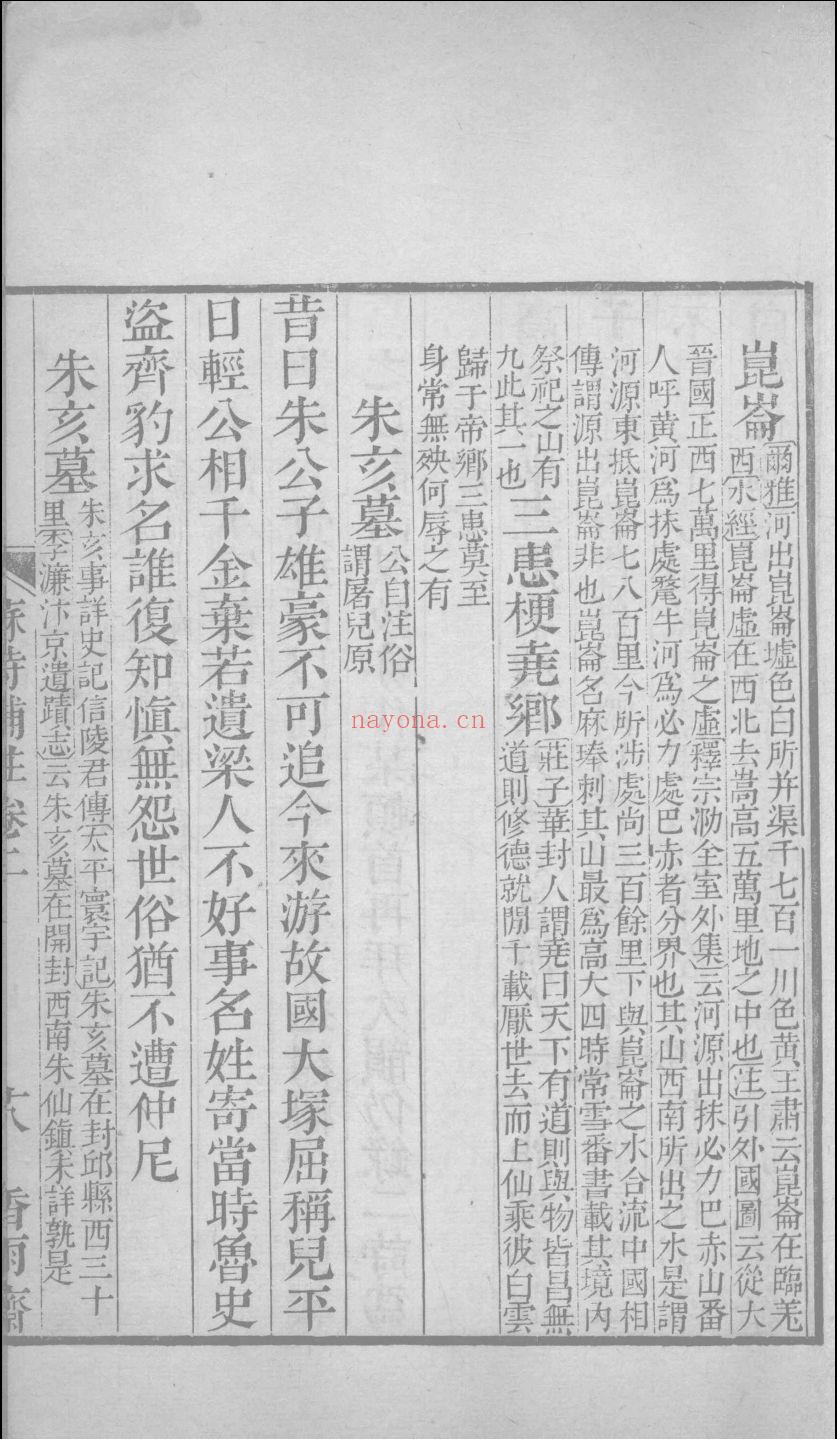 崑崙爾雅河出崑崙墟色白所并渠千七百一川色黃王肅云崑崙在臨羌
西水經崑崙虛在西北去嵩高五萬里地之中也注引外國圖云從大
晉國正西七萬里得崑崙之虛釋宗泐全室外集云河源出抹必力巴赤山番
人呼黃河爲抹處犛牛河爲必力處巴赤者分界也其山西南所出之水是謂
河源東抵崑崙七八百里今所涉處尚三百餘里下與崑崙之水合流中國相
傳謂源出崑崙非也崑崙名麻琫刺其山最爲高大四時常雪番書載其境內
祭祀之山有
九此其一也
三患梗堯鄉莊子華封人謂堯曰天下有道則與物皆昌無
道則修德就閒千載厭世去而上仙乘彼白雲
歸于帝鄉三患莫至
身常無殃何辱之有
朱亥墓公自注俗
謂屠兒原
昔日朱公子雄豪不可追今來游故國大塚屈稱兒平
日輕公相千金棄若遺梁人不好事名姓寄當時魯史
盜齊豹求名誰復知愼無怨世俗猶不遭仲尼
朱亥墓朱亥事詳史記信陵君傳太平寰宇記朱亥墓在封邱縣西三十
里李濂汴京遺蹟志云朱亥墓在開封西南朱仙鎭未詳孰是
蘇詩補註卷二 十八 香雨齋
nayona.cn